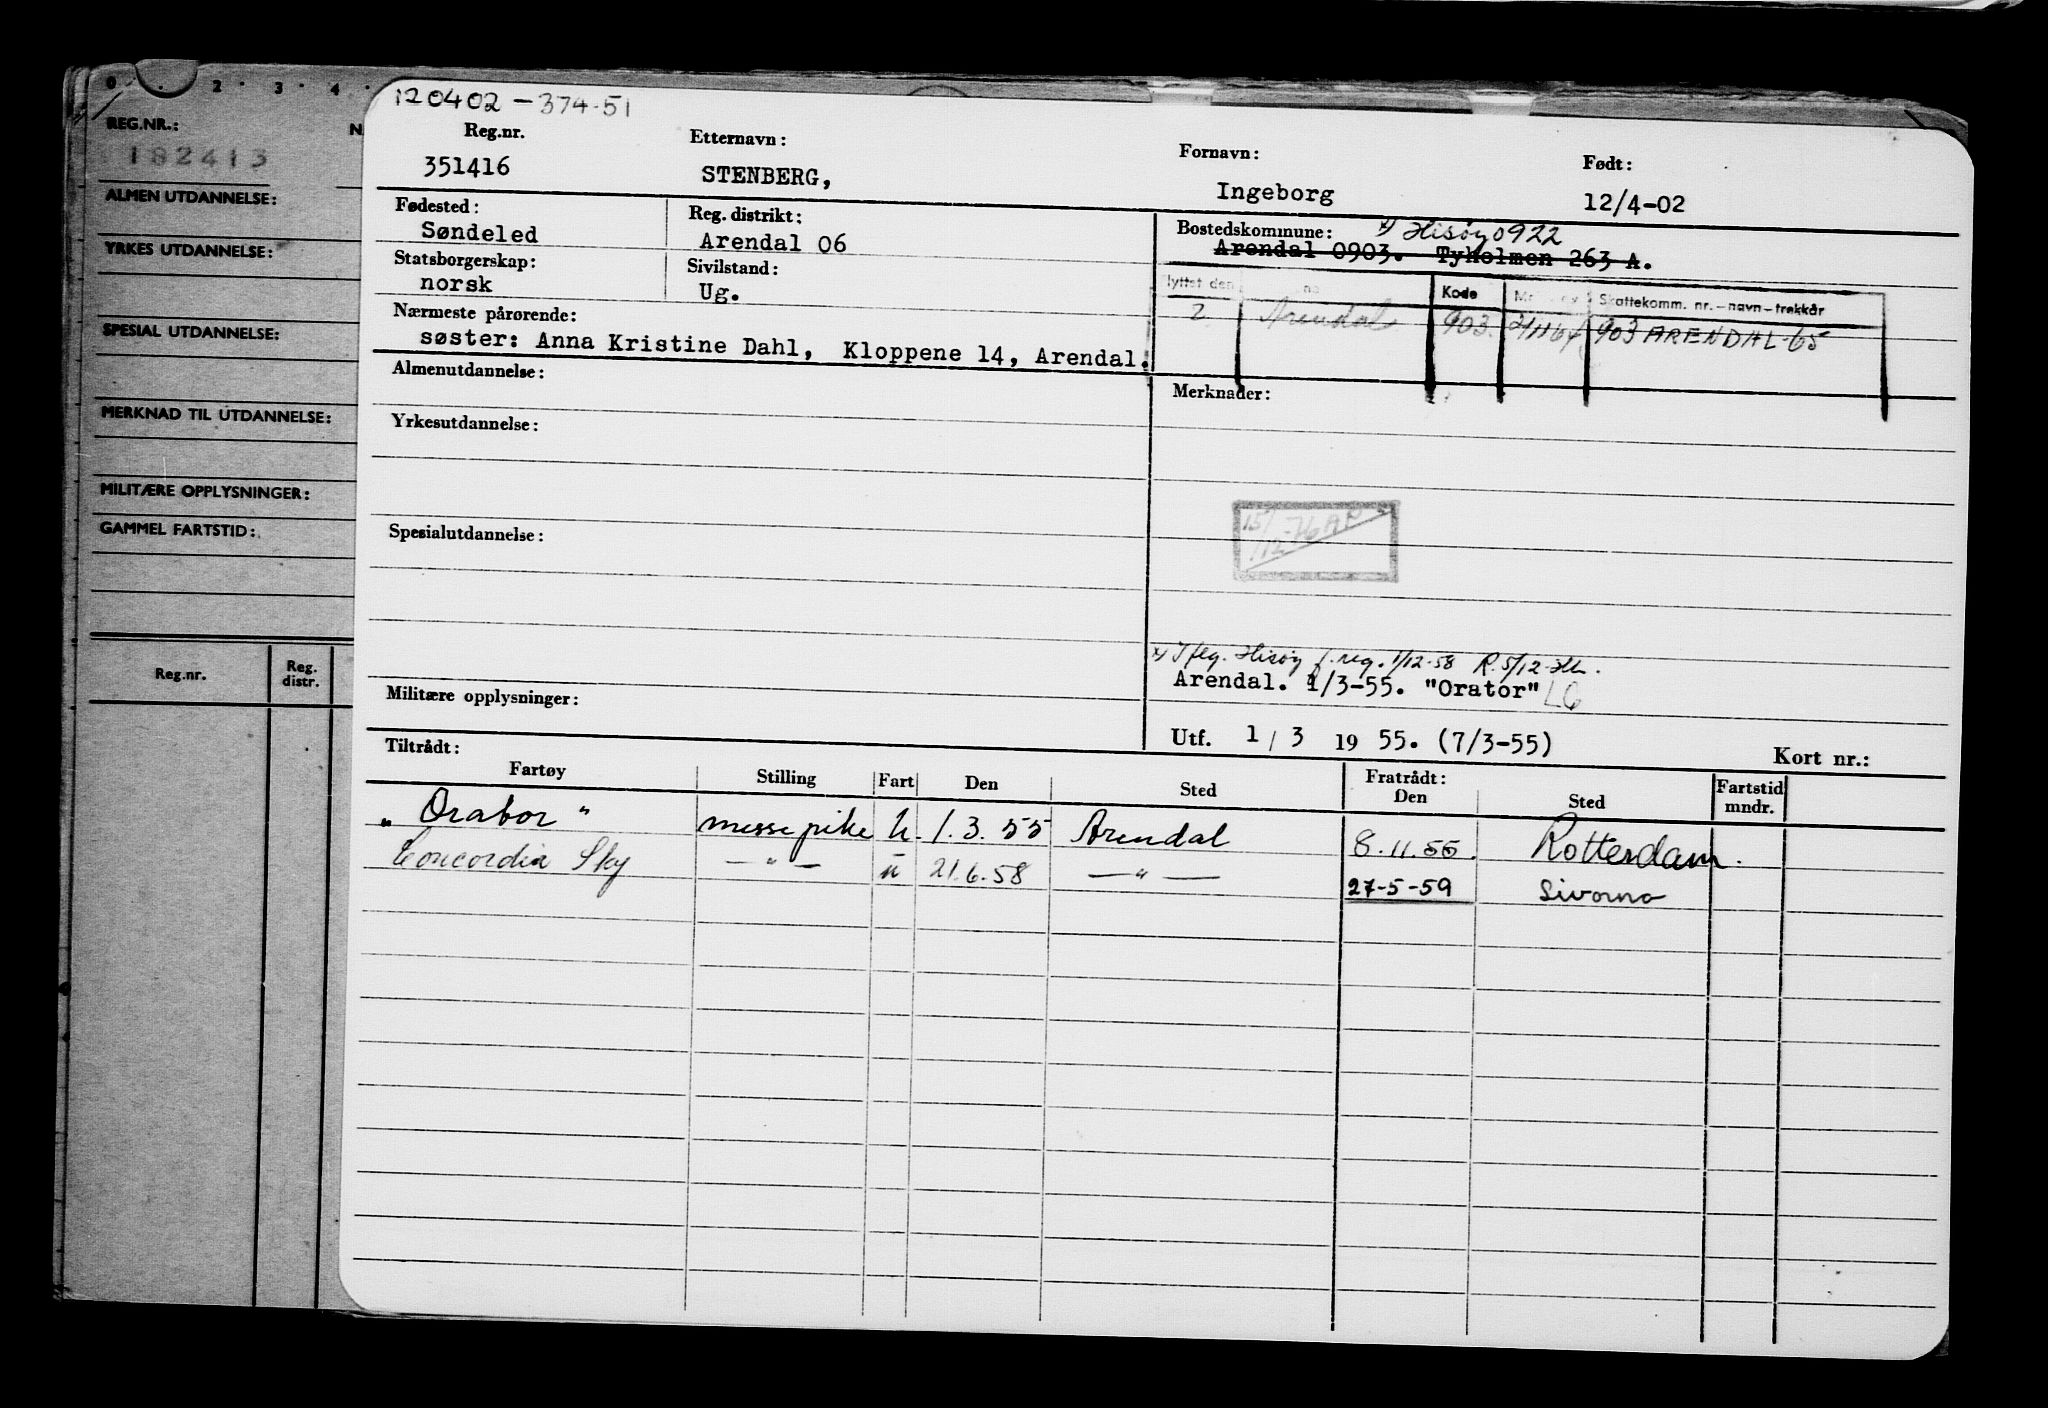 0 . 2 . 3 . 4 .
REG.NR.:
182413
ALMEN UTDANNELSE:
YRKES UTDANNELSE:
SPESIAL UTDANNELSE:
MERKNAD TIL UTDANNELSE:
MILITÆRE OPPLYSNINGER:
GAMMEL FARTSTID:
Reg.nr. Reg. distr.
120402-374-51
Reg.nr. Etternavn: Fornavn: Født:
351416 STENBERG, Ingeborg 12/4-02
Fødested: Reg. distrikt: Bostedskommune: x) Hisøy 0922
Søndeled Arendal 06 Arendal 0903. Tyholmen 263 A.
Statsborgerskap: Sivilstand:
norsk Ug.
lyttet den Kode Skattekomm. nr.-navn-trekkår
2 Arendal 903. 903 ARENDAL-65
Nærmeste pårørende:
søster: Anna Kristine Dahl, Kloppene 14, Arendal.
Almenutdannelse: Merknader:
Yrkesutdannelse:
15/12-76 AP
Spesialutdannelse:
x) Iflg. Hisøy f.reg. 1/12-58 R. 5/12
Arendal. 1/3-55. "Orator" LG
Militære opplysninger:
Utf. 1/3 1955. (7/3-55) Kort nr.:
Tiltrådt: Fratrådt:
Fartøy Stilling Fart Den Sted Den Sted Fartstid mndr.
"Orator" messepike U. 1.3.55 Arendal 8.11.55. Rotterdam.
Concordia Sky -"- u 21.6.58 -"- 27-5-59 Livorno